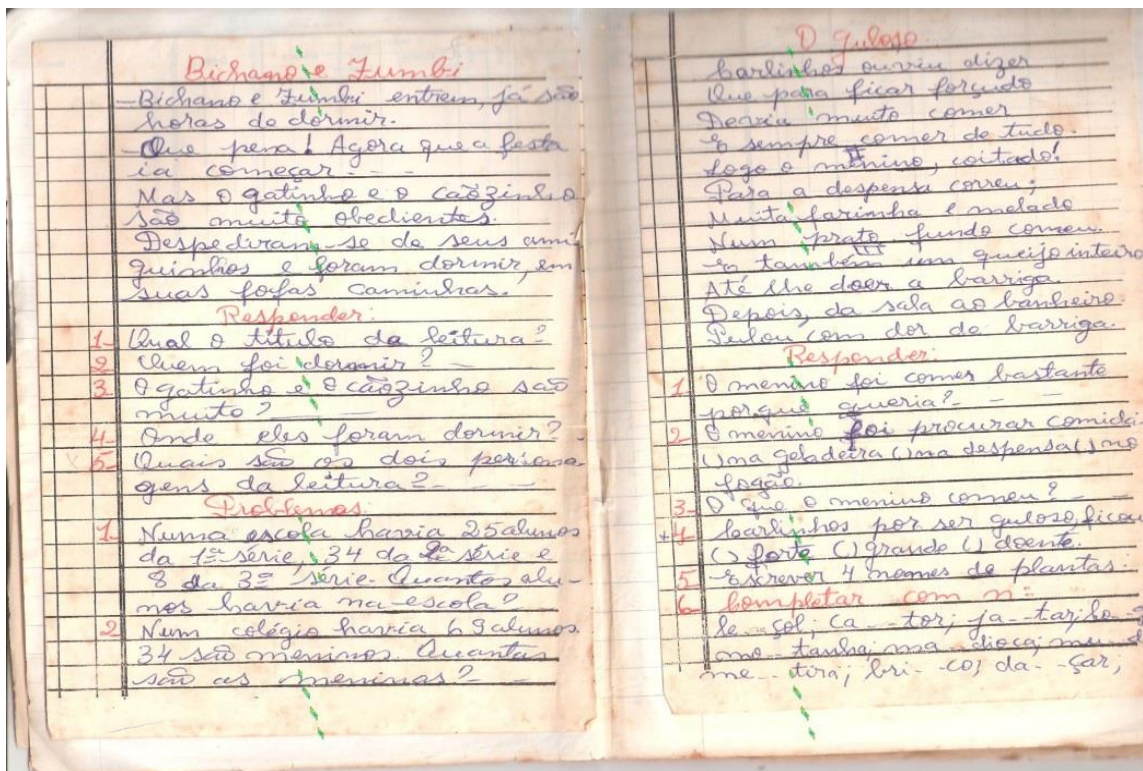 Bichano e Zumbi
- Bichano e Zumbi entrem, já são
horas de dormir.
- Que pena! Agora que a festa
ia começar - - -
Mas o gatinho e o cãozinho
são muito obedientes.
Despediram-se de seus ami
guinhos e foram dormir, em
suas fofas caminhas.
Responder:
1- Qual o título da leitura?
2- Quem foi dormir? -
3- O gatinho e o cãozinho são
muito? - - -
4- Onde eles foram dormir? -
5- Quais são os dois persona-
gens da leitura? - - -
Problemas
1- Numa escola havia 25 alunos
da 1ª série, 34 da 2ª série e
8 da 3ª série. Quantos alu-
nos havia na escola?
2 Num colégio havia 69 alunos.
34 são meninos. Quantas
são as meninas? - -
O guloso
Carlinhos ouviu dizer
Que para ficar forçudo
Devia muito comer
E sempre comer de tudo.
Logo o menino, coitado!
Para a despensa correu;
Muita farinha e melado
Num prato fundo comeu.
E também um queijo inteiro
Até lhe doer a barriga.
Depois, da sala ao banheiro
Pulou com dor de barriga.
Responder:
1. O menino foi comer bastante
porque queria? - - -
2- O menino foi procurar comida
( ) na geladeira ( ) na despensa ( ) no
fogão.
3- O que o menino comeu? - -
4- Carlinhos por ser guloso, ficou
( ) forte ( ) grande ( ) doente.
5- Escrever 4 nomes de plantas:
6- Completar com n:
le - çol; ca - - tor; ja - - tar;
mo - - tanha; ma - dioca;
me - - tira; bri - - co; da - - çar;